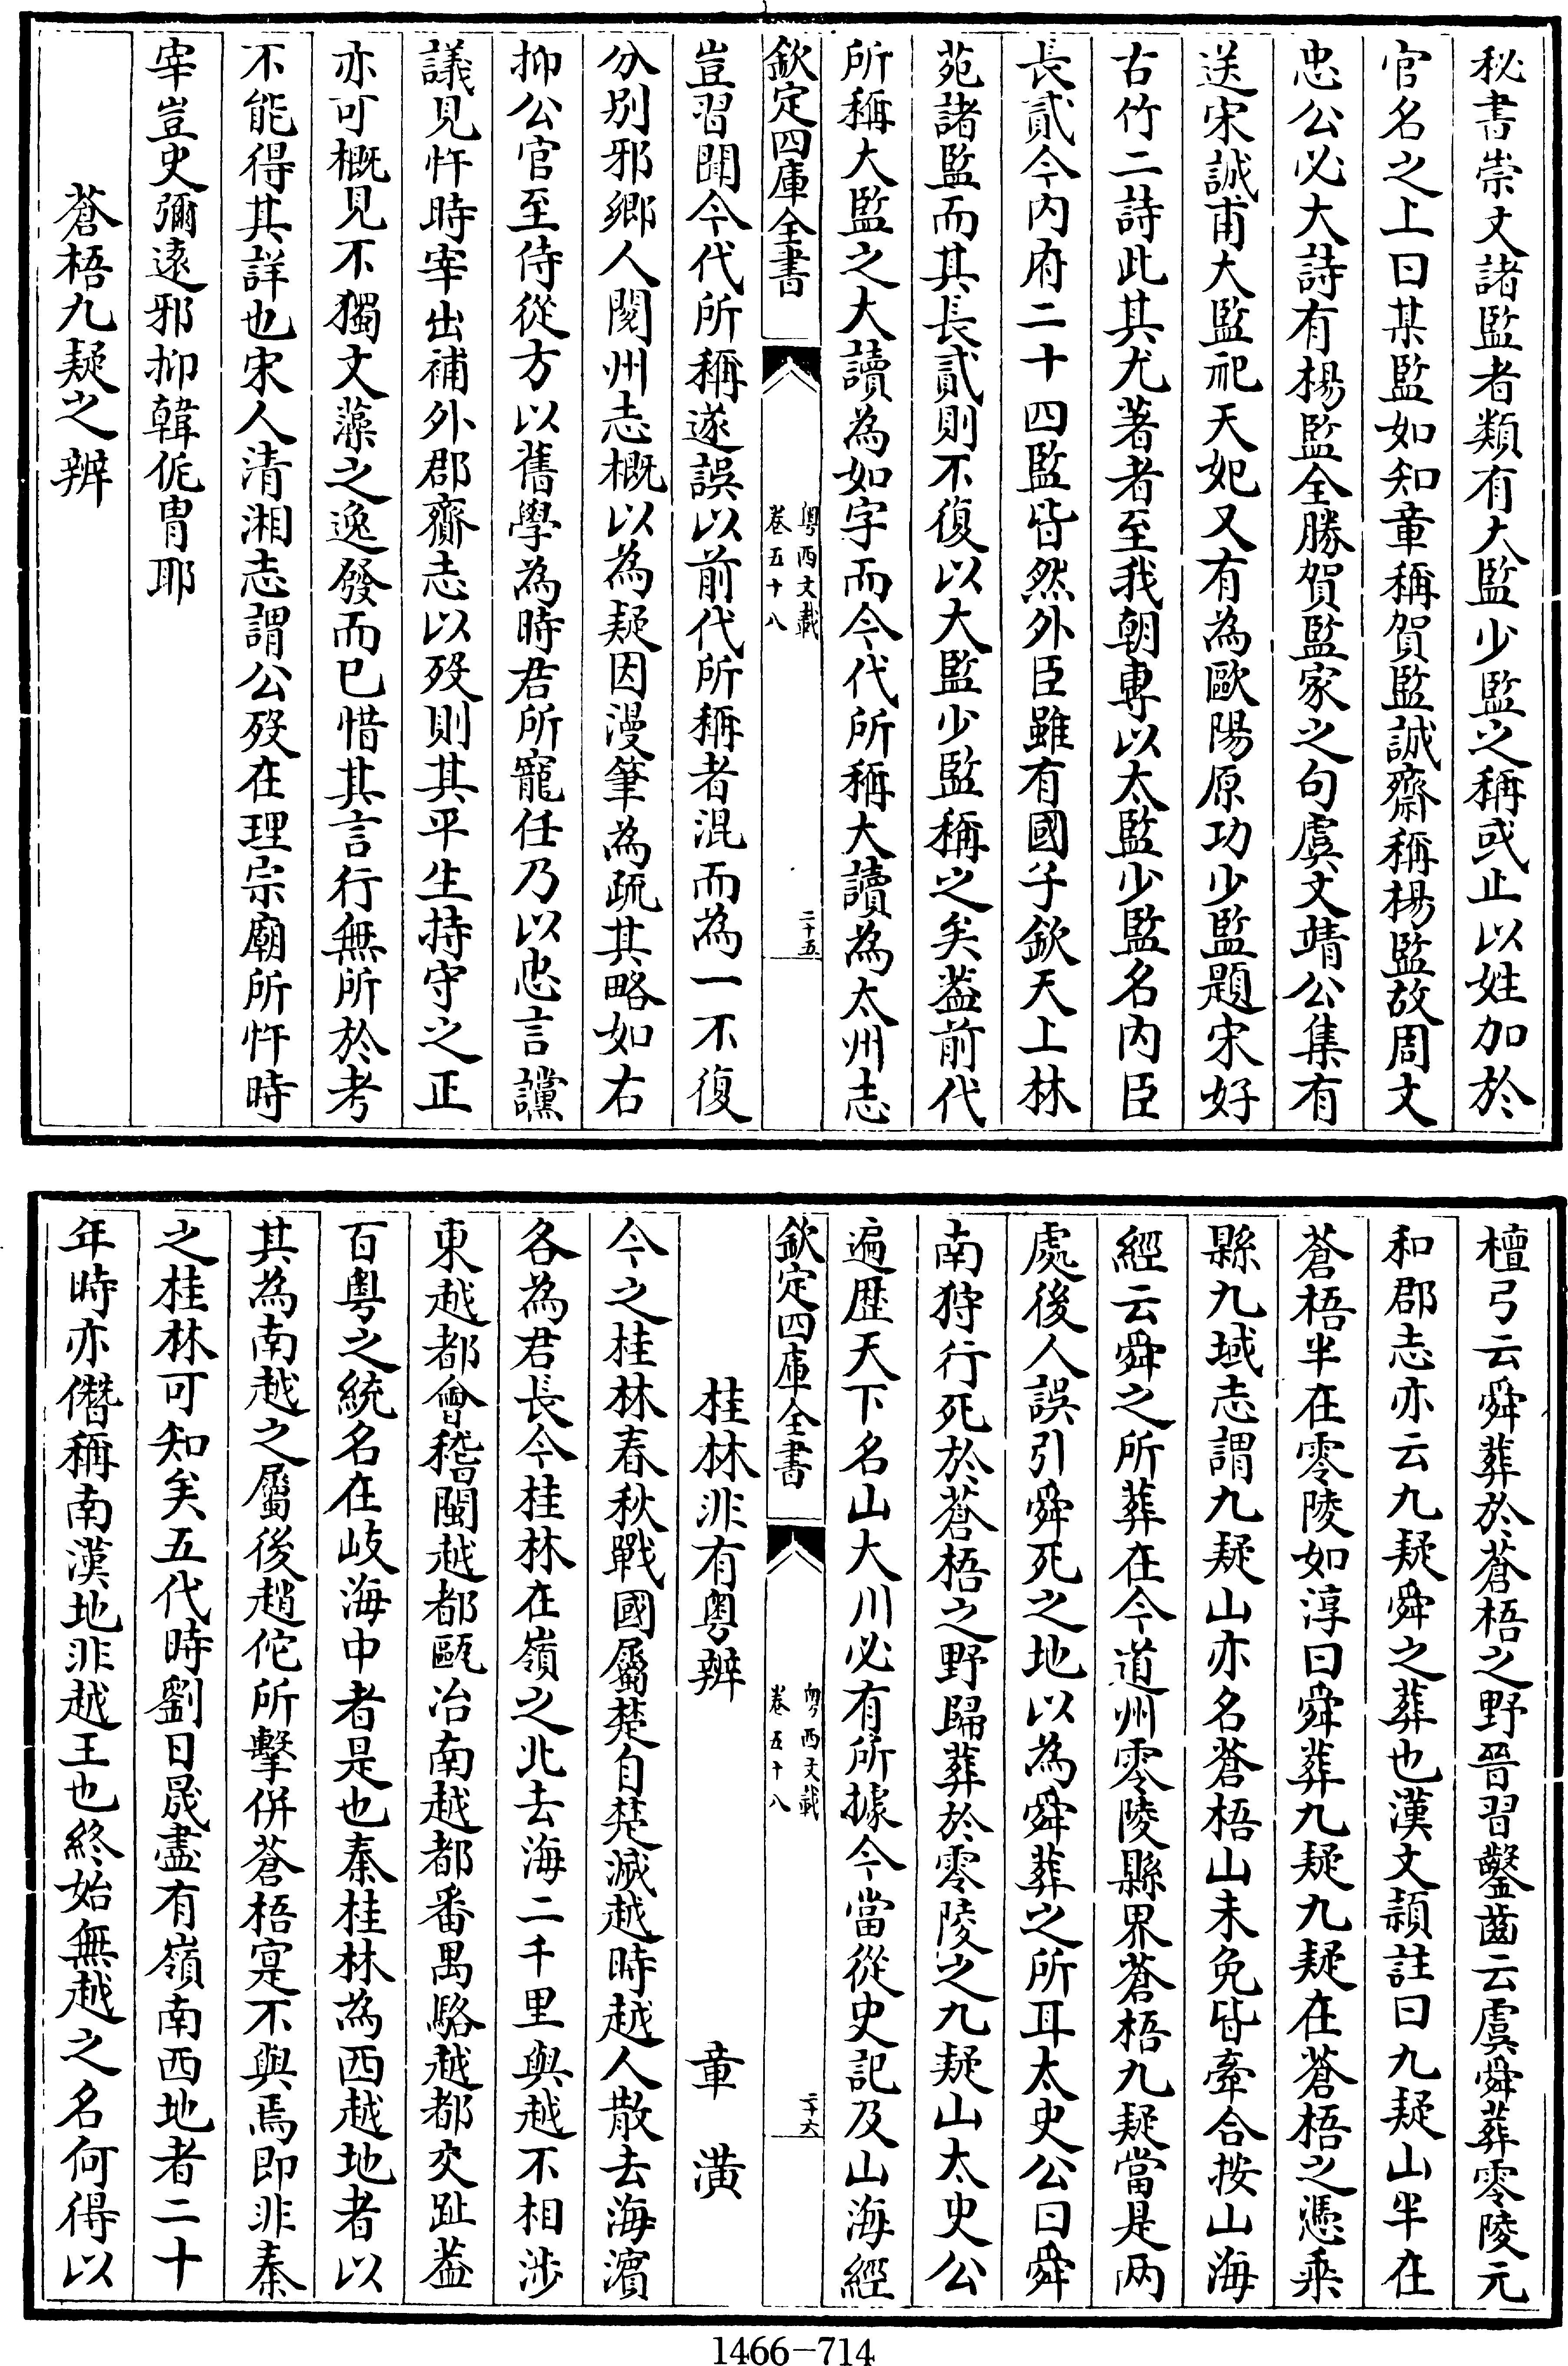 秘書崇文諸監者類有大監少監之稱或止以姓加於
官名之上曰某監如知章稱賀監誠齋稱楊監故周文
忠公必大詩有楊監全勝賀監家之句虞文靖公集有
送宋誠甫大監祀天妃又有為歐陽原功少監題宋好
古竹二詩此其尤著者至我朝専以太監少監名内臣
長貳今内府二十四監皆然外臣雖有國子欽天上林
苑諸監而其長貳則不復以大監少監稱之矣葢前代
所稱大監之大讀為如字而今代所稱大讀為太州志
欽定四庫全書
粤西文載
卷五十八
二十五
豈習聞今代所稱遂誤以前代所稱者混而為一不復
分別邪鄉人閱州志概以為疑因漫筆為疏其略如右
抑公官至侍從方以舊學為時君所寵任乃以忠言讜
議見忤時宰出補外郡齎志以歿則其平生持守之正
亦可概見不獨文藻之逸發而已惜其言行無所於考
不能得其詳也宋人清湘志謂公歿在理宗廟所忤時
宰豈史彌遠邪抑韓侂胄耶
蒼梧九疑之辨
檀弓云舜葬於蒼梧之野晉習鑿齒云虞舜葬零陵元
和郡志亦云九疑舜之葬也漢文頴註曰九疑山半在
蒼梧半在零陵如淳曰舜葬九疑九疑在蒼梧之馮乘
縣九域志謂九疑山亦名蒼梧山未免皆牽合按山海
經云舜之所葬在今道州零陵縣界蒼梧九疑當是两
處後人誤引舜死之地以為舜葬之所耳太史公曰舜
南狩行死於蒼梧之野歸葬於零陵之九疑山太史公
遍歴天下名山大川必有所據今當從史記及山海經
欽定四庫全書
粤西文載
卷五十八
二十六
桂林非有粤辨 章潢
今之桂林春秋戰國屬楚自楚滅越時越人散去海濵
各為君長今桂林在嶺之北去海二千里與越不相涉
東越都會稽閩越都甌冶南越都番禺駱越都交趾葢
百粤之統名在岐海中者是也秦桂林為西越地者以
其為南越之屬後趙佗所擊併蒼梧寔不與焉即非秦
之桂林可知矣五代時劉日晟盡有嶺南西地者二十
年時亦僭稱南漢地非越王也終始無越之名何得以
1466-714